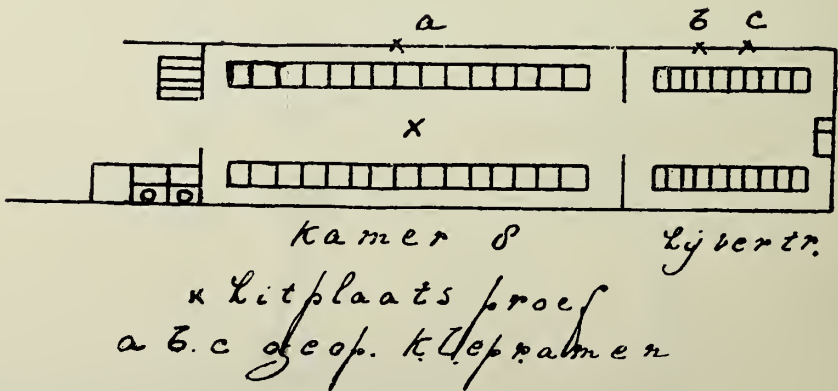 a b c
x
Kamer 8 Zijvertr.
x Zitplaats proef
a b.c geop. Klepramen